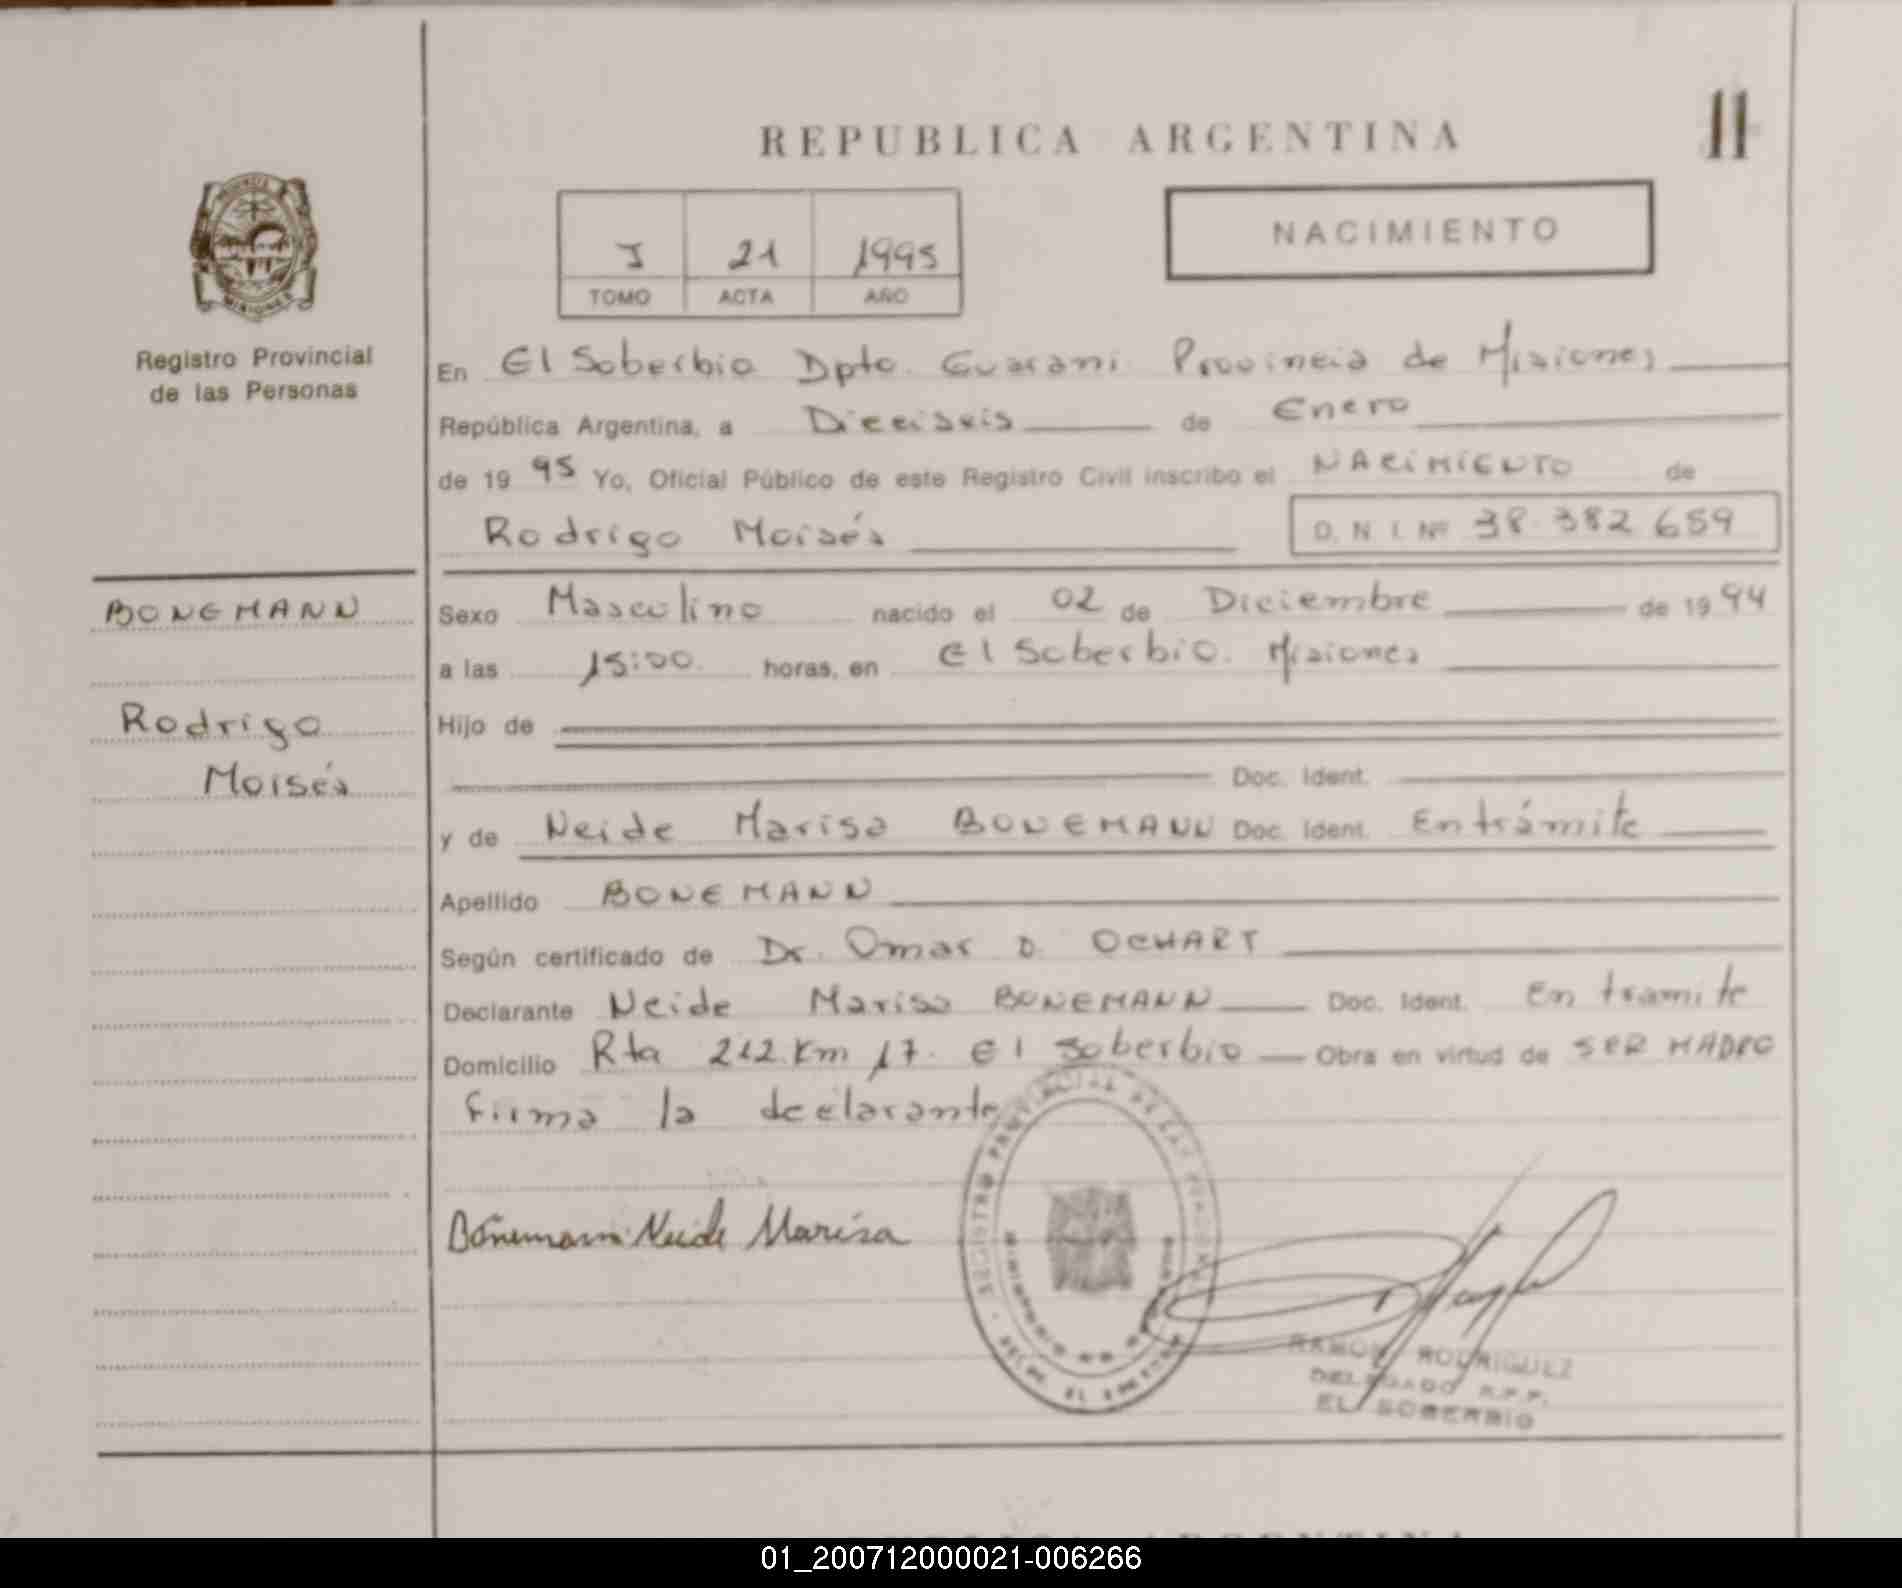 REPUBLICA ARGENTINA
11
I 21 1995
TOMO ACTA AÑO
NACIMIENTO
PROVINCIA
MISIONES
Registro Provincial
de las Personas
En El Soberbio Dpto. Guarani Provincia de Misiones
República Argentina, a Dieciseis de Enero
de 1995 Yo, Oficial Público de este Registro Civil inscribo el NACIMIENTO de
Rodrigo Moisés D. N. I. Nº 38.382 659
BONEMANN
Rodrigo
Moisés
Sexo Masculino nacido el 02 de Diciembre de 1994
a las 15:00. horas, en El Soberbio. Misiones
Hijo de
Doc. Ident.
y de Neide Marisa BONEMANN Doc. Ident. En trámite
Apellido BONEMANN
Según certificado de Dr. Omar O. OCHART
Declarante Neide Marisa BONEMANN Doc. Ident. En tramite
Domicilio Rta 212. Km 17. El Soberbio Obra en virtud de SER MADRE
firma la declarante
Bonemann Neide Marisa
REGISTRO PROVINCIAL DE LAS PERSONAS
RAMON RODRIGUEZ
DELEGADO R.P.P.
EL SOBERBIO
REPUBLICA ARGENTINA
01_200712000021-006266